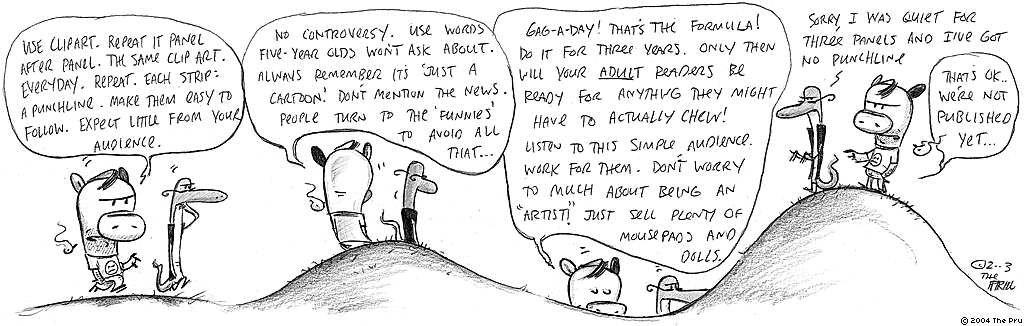 USE CLIPART. REPEAT IT PANEL
AFTER PANEL. THE SAME CLIP ART.
EVERYDAY. REPEAT. EACH STRIP:
A PUNCHLINE. MAKE THEM EASY TO
FOLLOW. EXPECT LITTLE FROM YOUR
AUDIENCE.
NO CONTROVERSY. USE WORDS
FIVE-YEAR OLDS WON'T ASK ABOUT.
ALWAYS REMEMBER ITS 'JUST A
CARTOON.' DON'T MENTION THE NEWS.
PEOPLE TURN TO THE 'FUNNIES'
TO AVOID ALL
THAT...
GAG-A-DAY! THAT'S THE FORMULA!
DO IT FOR THREE YEARS. ONLY THEN
WILL YOUR ADULT READERS BE
READY FOR ANYTHING THEY MIGHT
HAVE TO ACTUALLY CHEW!
LISTEN TO THIS SIMPLE AUDIENCE.
WORK FOR THEM. DON'T WORRY
TO MUCH ABOUT BEING AN
"ARTIST!" JUST SELL PLENTY OF
MOUSEPADS AND
DOLLS.
SORRY, I WAS QUIET FOR
THREE PANELS AND I'VE GOT
NO PUNCHLINE
THAT'S OK..
WE'RE NOT
PUBLISHED
YET...
2..3
THE
© 2004 The Pru